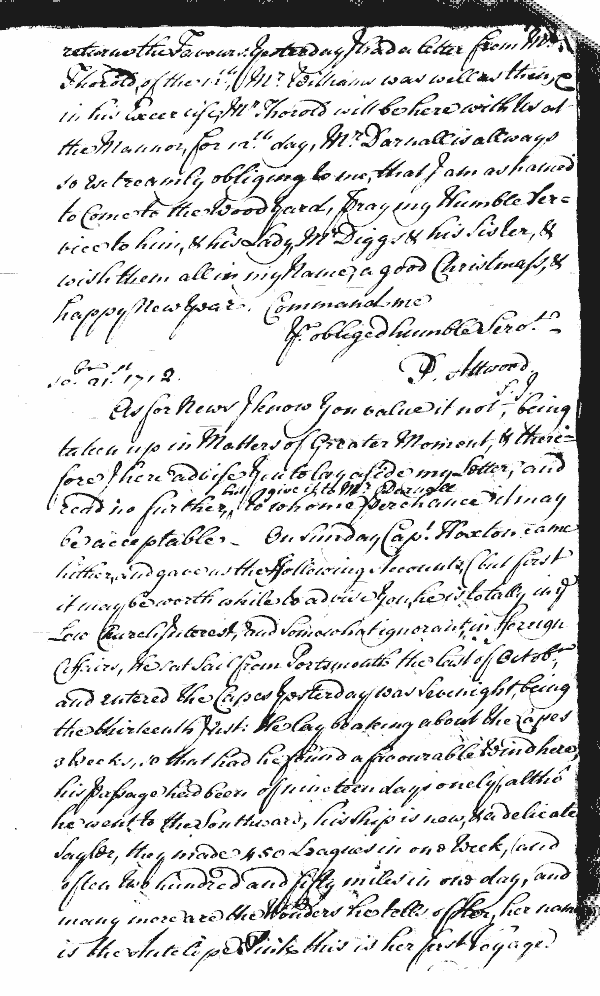 returne the Favours: Yesterday I had a letter from Mr.
Thorold, of the 12th, Mr. Williams was well as then,
in his Excercise, Mr Thorold will be here with Us at
the Mannor, for 12th day, Mr. Darnall is allways
so Extreamly obliging to me, that I am ashamed
to Come to the Wood Yard, Pray my Humble Ser=
vice to him, & his Lady, Mr Diggs & his Sister, &
wish them all in my Name, a good Christmass, &
happy New Year. Command me
Yr. obliged humble Servt.
P. Attwood
xbr 21st 1712.
As for News I know You value it not, being
taken up in Matters of Greater Moment, & there=
fore I here advise You to lay aside my Letter, and
read no further, but give it to Mr Darnall
to whome perchance it may
be acceptable. On Sunday Capt. Hoxton came
hither, and gave us the following Accounts, (but first
it may be worth while to advise You, he is totally in ye
Low Church Interest, and somewhat ignorant in foreign
Affairs, He set Sail from Portsmouth the last of Octobr,
and entered the Capes Yesterday was Sevenight, being
the thirteenth Inst: He lay beaking about the Capes
3 Weeks, so that had he found a favourable Wind here,
his Passage had been of nineteen days onely, altho
he went to the Southward, his ship is new, & a delicate
Sayler, they made 450 Leagues in one Week, and
often two hundred and fifty miles in one day, and
many more are the Wonders he tells of her, her name
is the Antelope, this is her first Voyage.